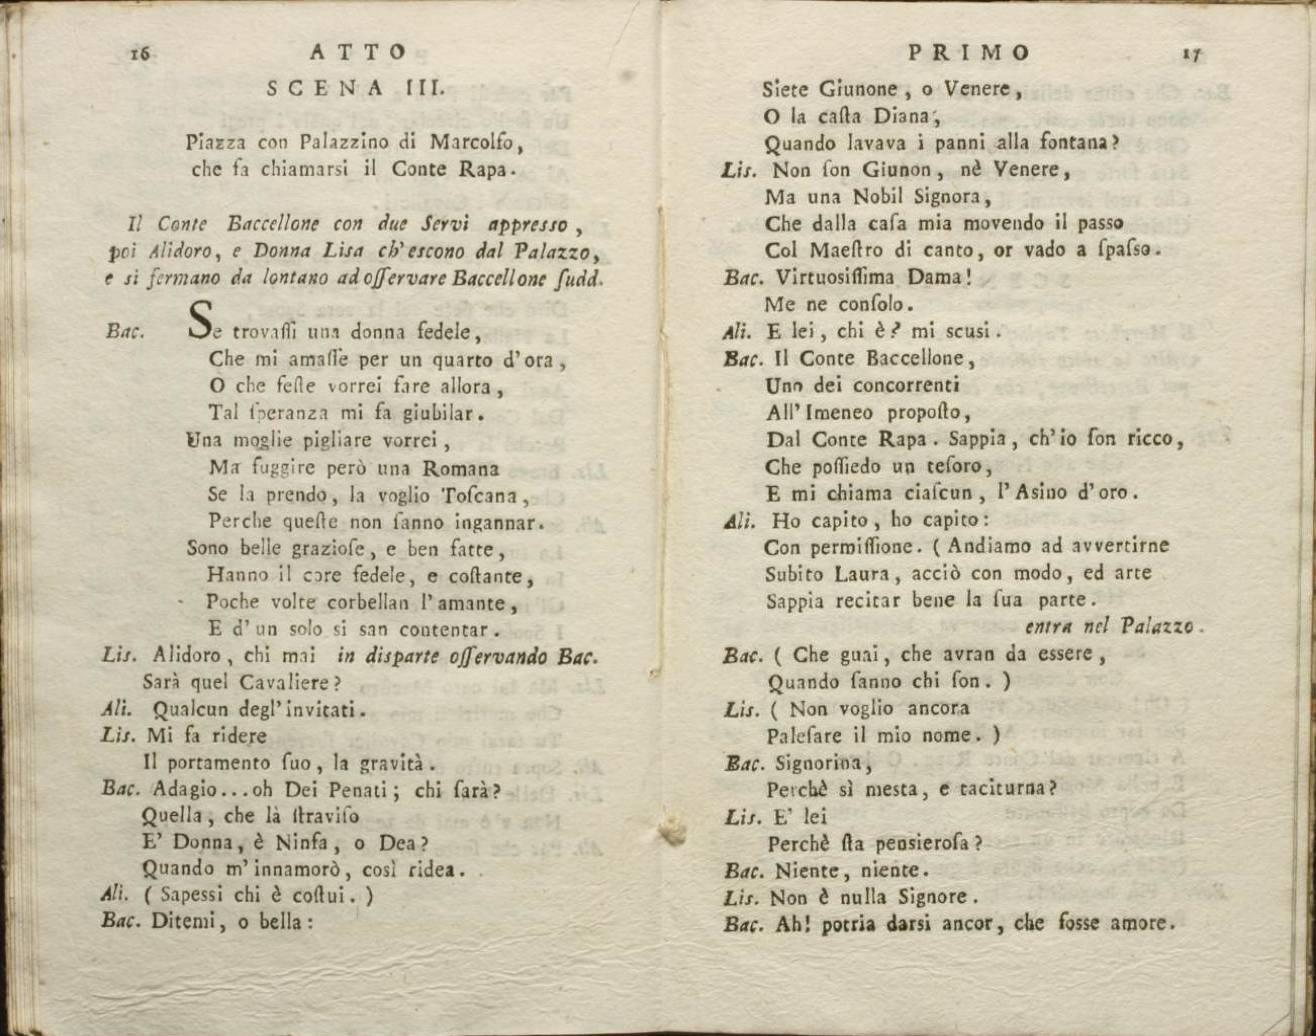 16 ATTO
SCENA III.
Piazza con Palazzino di Marcolfo,
che fa chiamarsi il Conte Rapa.
Il Conte Baccellone con due Servi appresso,
poi Alidoro, e Donna Lisa ch'escono dal Palazzo,
e si fermano da lontano ad oſſervare Baccellone ſudd.
Bac. Se trovaſſi una donna fedele,
Che mi amaſſe per un quarto d'ora,
O che feſte vorrei fare allora,
Tal ſperanza mi fa giubilar.
Una moglie pigliare vorrei,
Ma fuggire però una Romana
Se la prendo, la voglio Toſcana,
Perche queſte non ſanno ingannar.
Sono belle grazioſe, e ben fatte,
Hanno il core fedele, e coſtante,
Poche volte corbellan l'amante,
E d'un solo si san contentar.
Lis. Alidoro, chi mai in disparte oſſervando Bac.
Sarà quel Cavaliere?
Ali. Qualcun degl'invitati.
Lis. Mi fa ridere
Il portamento ſuo, la gravità.
Bac. Adagio...oh Dei Penati; chi ſarà?
Quella, che là ſtraviſo
E' Donna, è Ninfa, o Dea?
Quando m'innamorò, così ridea.
Ali. (Sapessi chi è coſtui.)
Bac. Ditemi, o bella:
PRIMO 17
Siete Giunone, o Venere,
O la caſta Diana,
Quando lavava i panni alla fontana?
Lis. Non ſon Giunon, nè Venere,
Ma una Nobil Signora,
Che dalla caſa mia movendo il passo
Col Maeſtro di canto, or vado a ſpaſso.
Bac. Virtuosiſſima Dama!
Me ne conſolo.
Ali. E lei, chi è? mi scusi.
Bac. Il Conte Baccellone,
Uno dei concorrenti
All'Imeneo propoſto,
Dal Conte Rapa. Sappia, ch'io ſon ricco,
Che poſſiedo un teſoro,
E mi chiama ciaſcun, l'Asino d'oro.
Ali. Ho capito, ho capito:
Con permiſſione. (Andiamo ad avvertirne
Subito Laura, acciò con modo, ed arte
Sappia recitar bene la ſua parte.
entra nel Palazzo.
Bac. (Che guai, che avran da essere,
Quando ſanno chi ſon.)
Lis. (Non voglio ancora
Paleſare il mio nome.)
Bac. Signorina,
Perchè sì mesta, e taciturna?
Lis. E' lei
Perchè ſta pensieroſa?
Bac. Niente, niente.
Lis. Non è nulla Signore.
Bac. Ah! potria darsi ancor, che fosse amore.